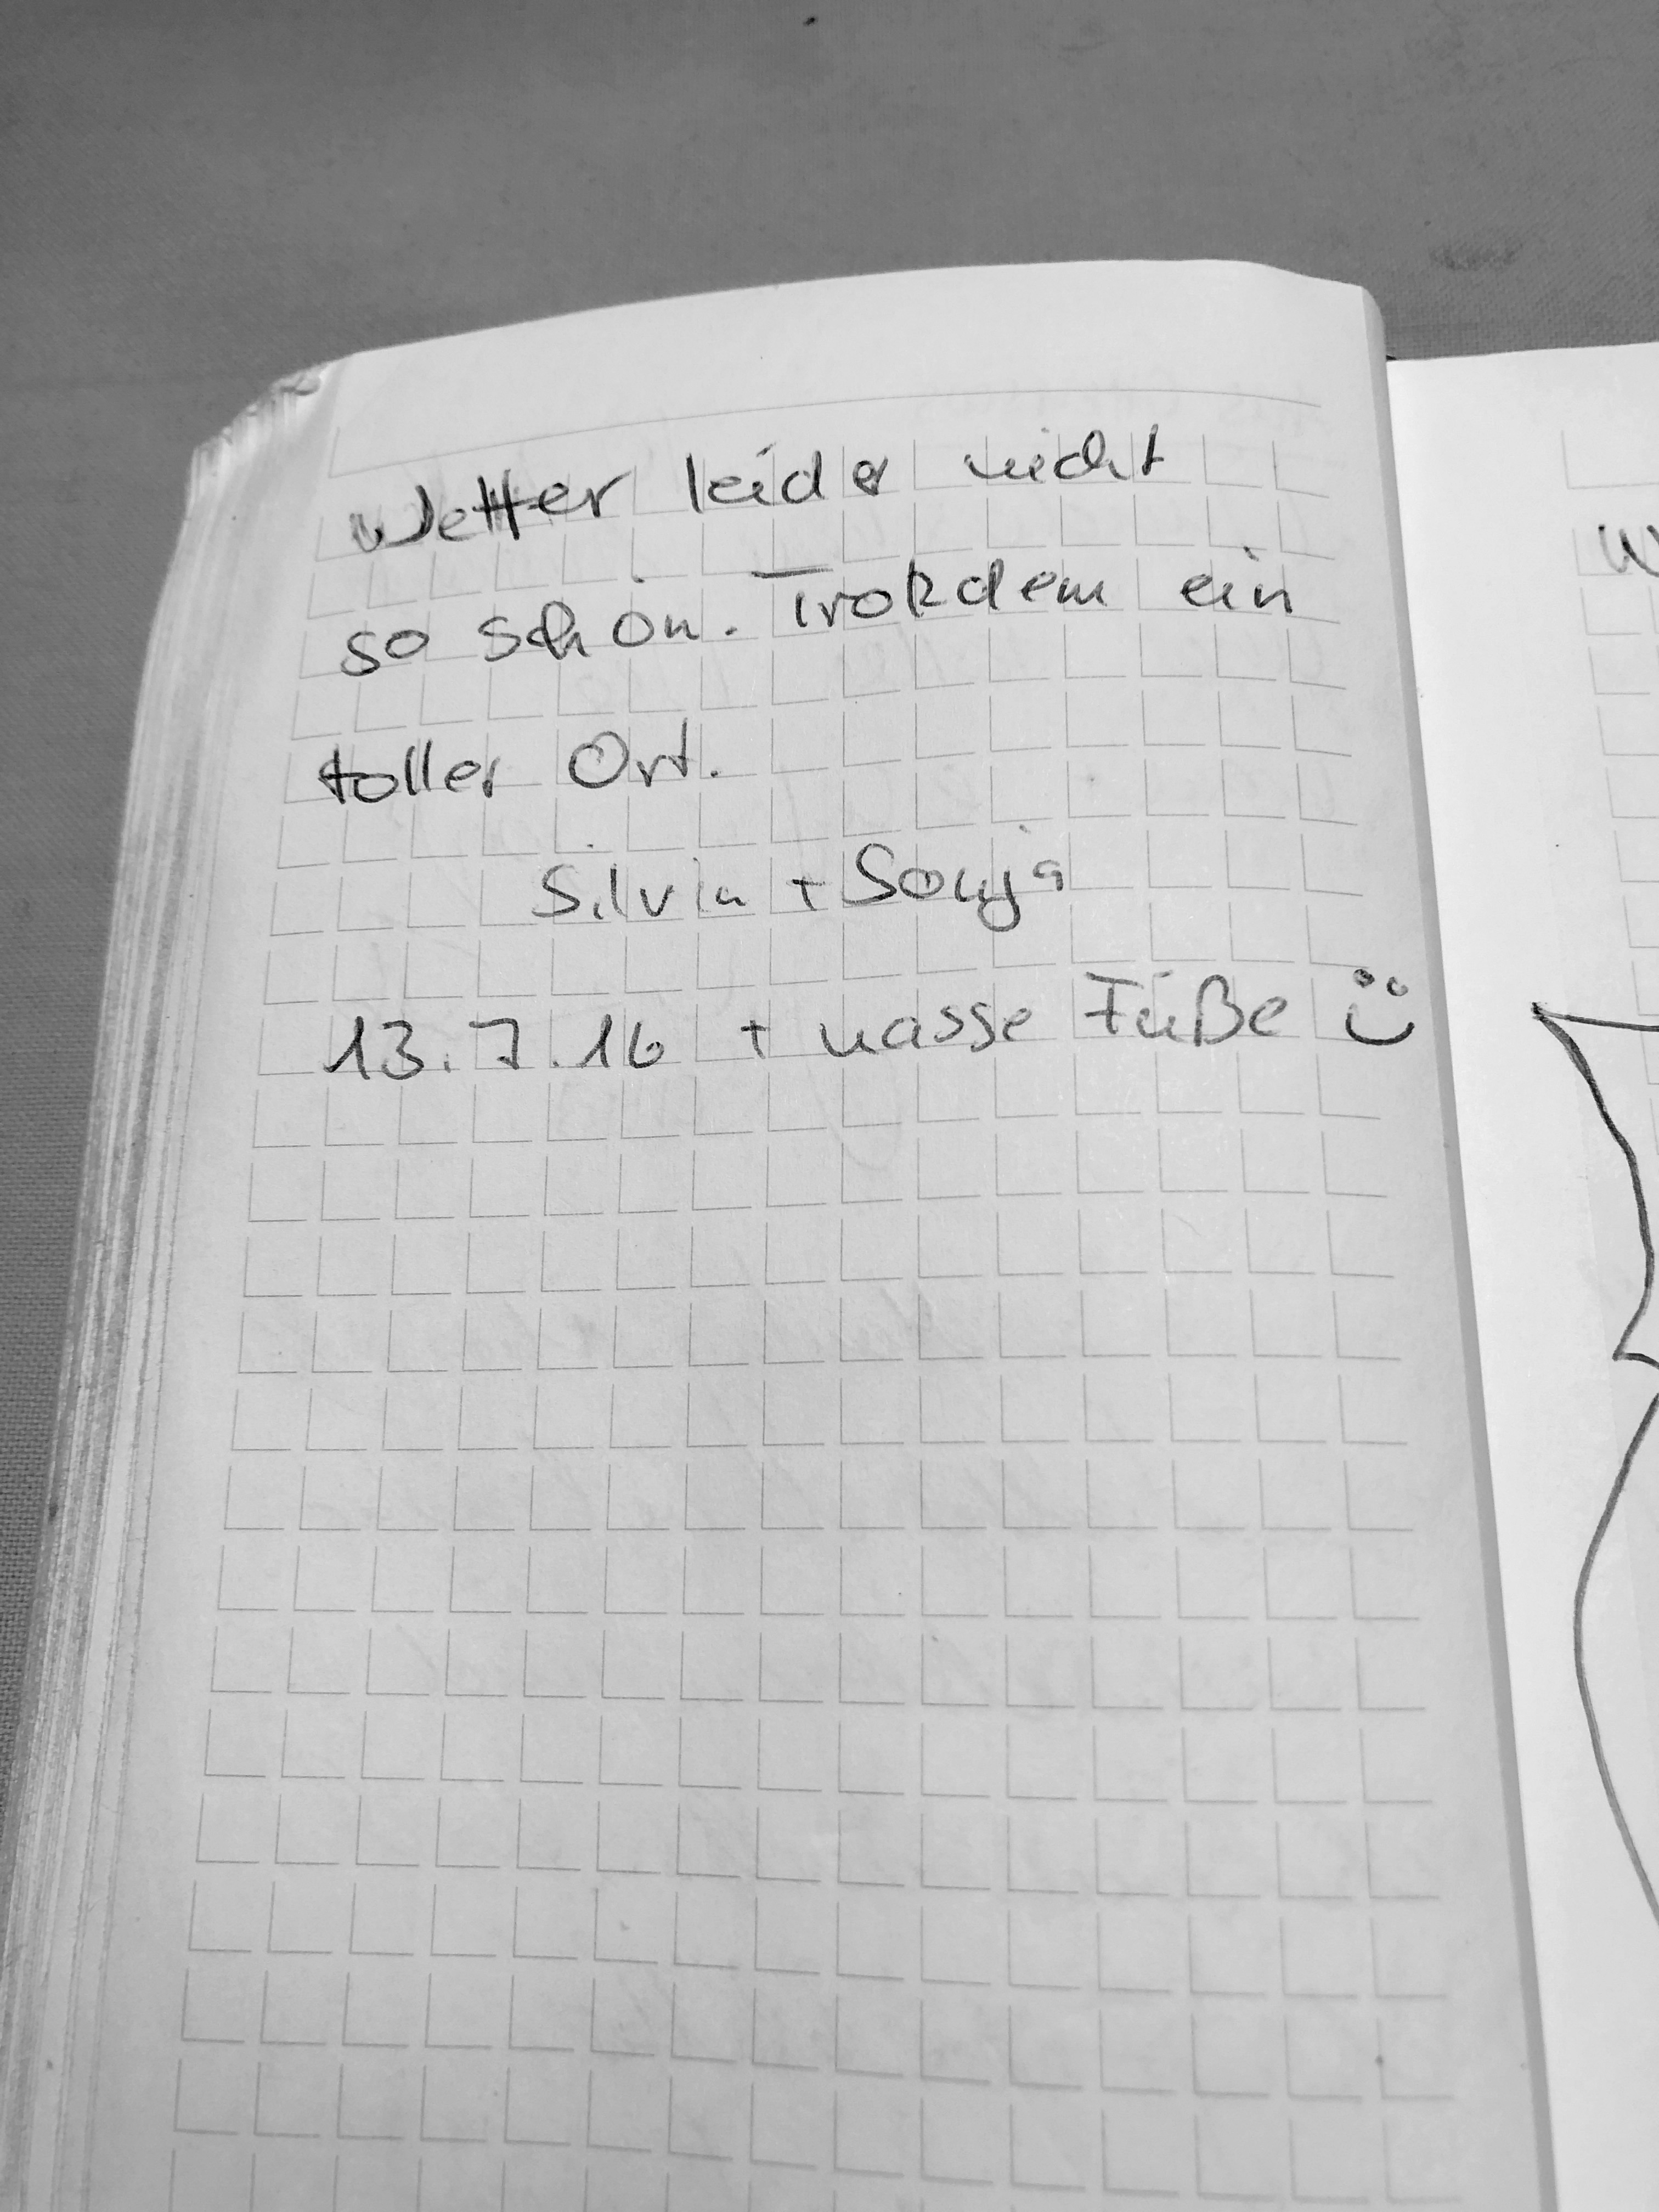 Wetter leider nicht
so schön. Trotzdem ein
toller Ort.
Silvia + Sonja
13.7.16 + nasse Füße ü
W